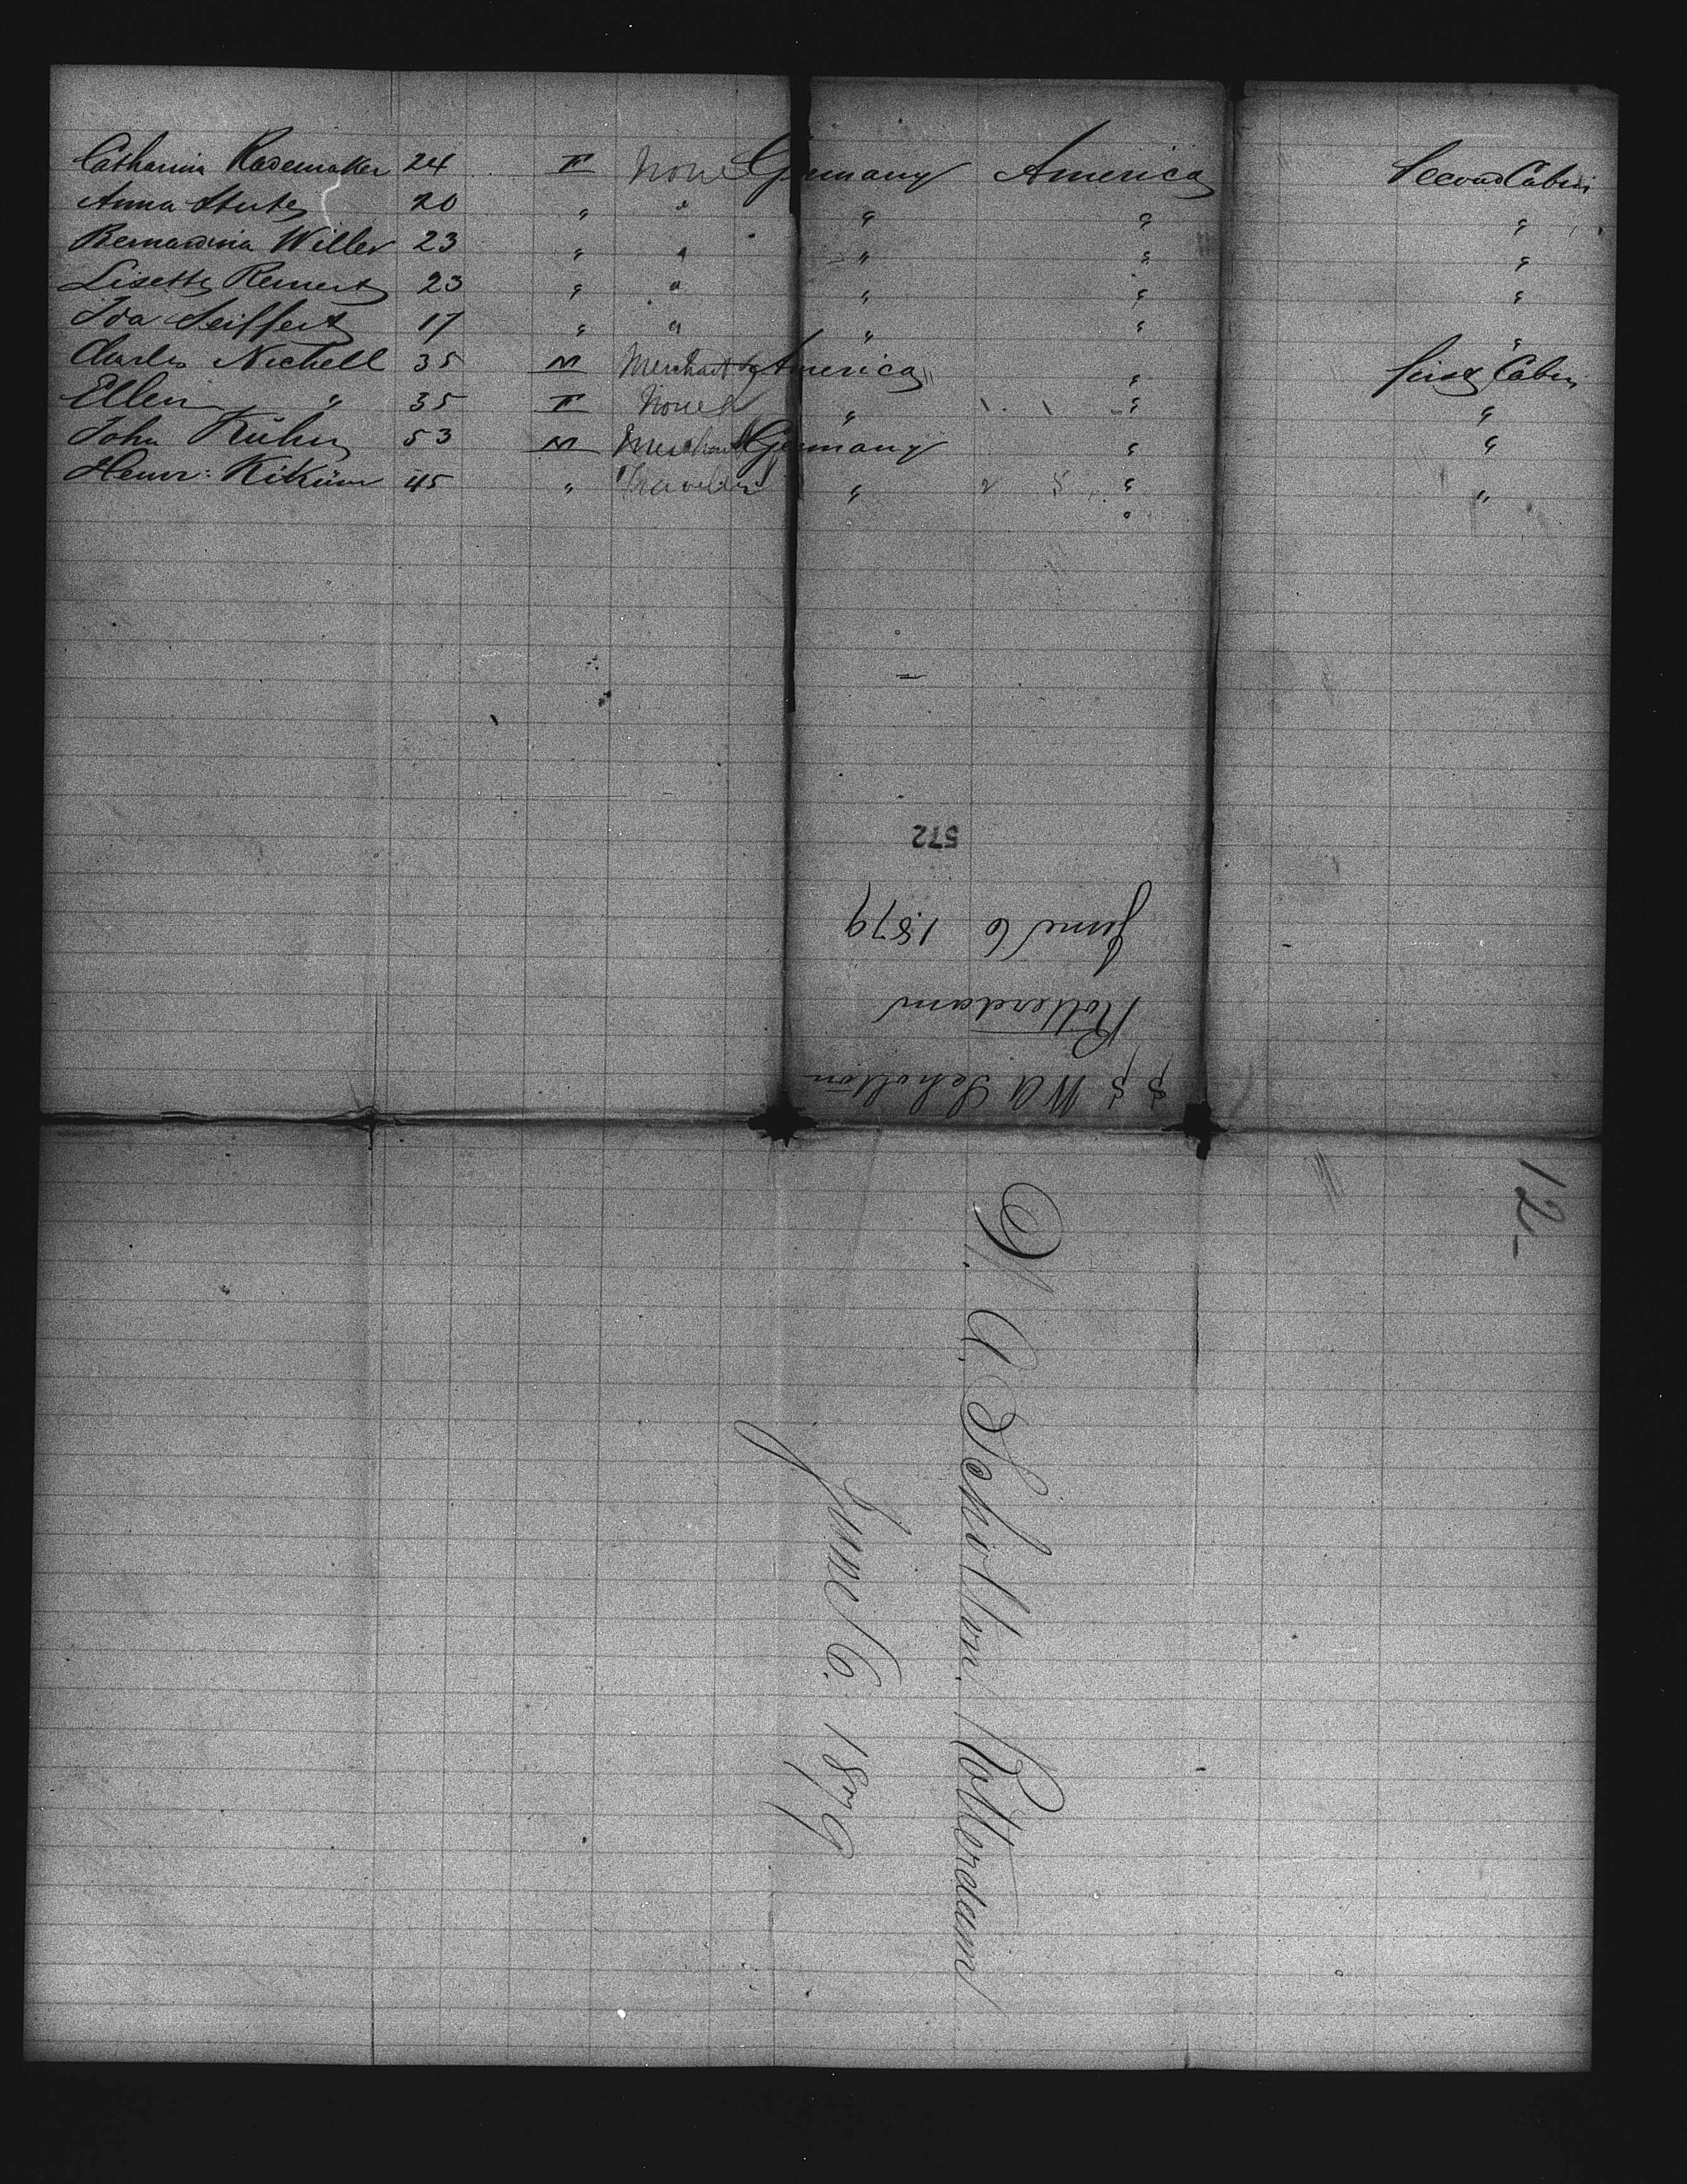 Catharina Rademaker 24 F None Germany America Second Cabin
Anna 20 " " " " "
Bernardina Willer 23 " " " " "
Lisette 23 " " " " "
Ida Seiffert 17 " " " " "
Charles Nichell 35 M Merchant America " First Cabin
Ellen " 35 F None " " "
John Kühn 53 M Merchant Germany " "
Henr: 45 " " " "
572
June 6 1879
Rotterdam
S S W A Scholten
12-
W. A. Scholten. Rotterdam
June 6. 1879